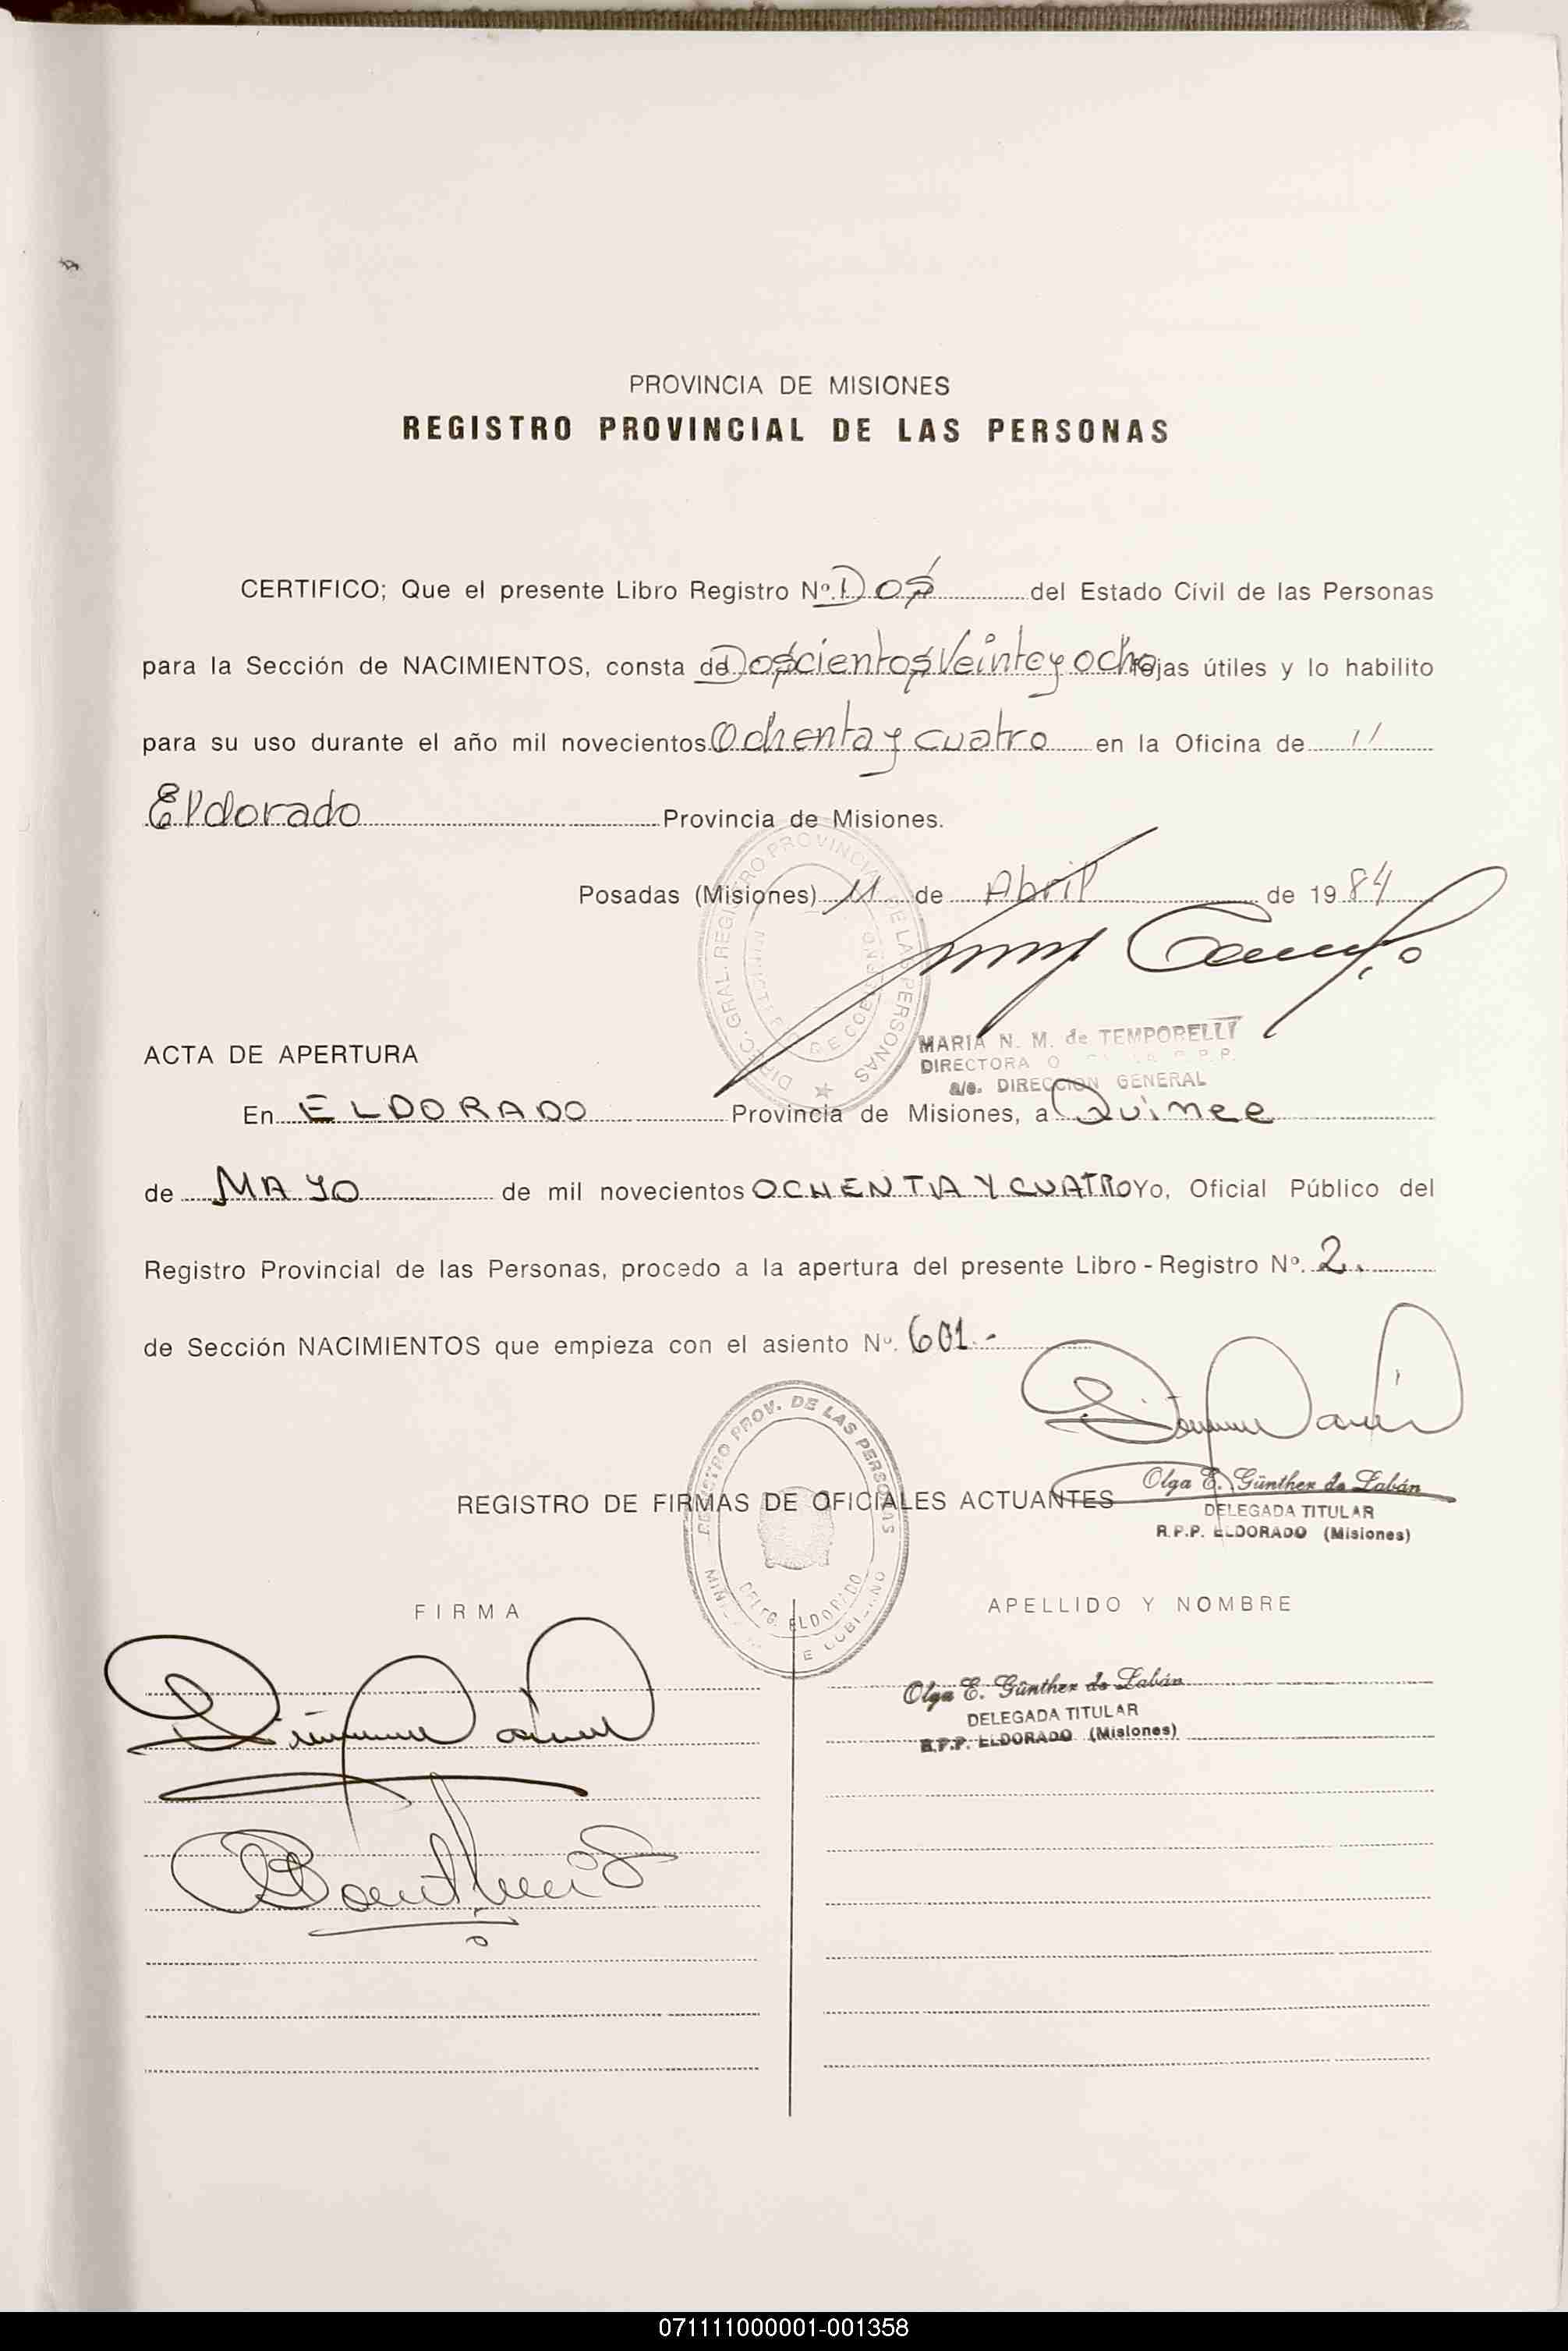 PROVINCIA DE MISIONES
REGISTRO PROVINCIAL DE LAS PERSONAS
CERTIFICO; Que el presente Libro Registro Nº. Dos del Estado Civil de las Personas
para la Sección de NACIMIENTOS, consta de Doscientos Veinte y ocho fojas útiles y lo habilito
para su uso durante el año mil novecientos Ochenta y cuatro en la Oficina de //
Eldorado Provincia de Misiones.
Posadas (Misiones) 11 de Abril de 1984
DIREC. GRAL. REGISTRO PROVINCIAL DE LAS PERSONAS
MINISTERIO DE GOBIERNO
MARIA N. M. de TEMPORELLI
DIRECTORA
a/c. DIRECCION GENERAL
ACTA DE APERTURA
En ELDORADO Provincia de Misiones, a Quince
de MAYO de mil novecientos OCHENTA Y CUATRO Yo, Oficial Público del
Registro Provincial de las Personas, procedo a la apertura del presente Libro - Registro Nº. 2.
de Sección NACIMIENTOS que empieza con el asiento Nº. 601.-
REGISTRO PROV. DE LAS PERSONAS
DELEG. ELDORADO
Olga E. Günther de Labán
DELEGADA TITULAR
R.P.P. ELDORADO (Misiones)
REGISTRO DE FIRMAS DE OFICIALES ACTUANTES
FIRMA APELLIDO Y NOMBRE
Olga E. Günther de Labán
DELEGADA TITULAR
R.P.P. ELDORADO (Misiones)
071111000001-001358